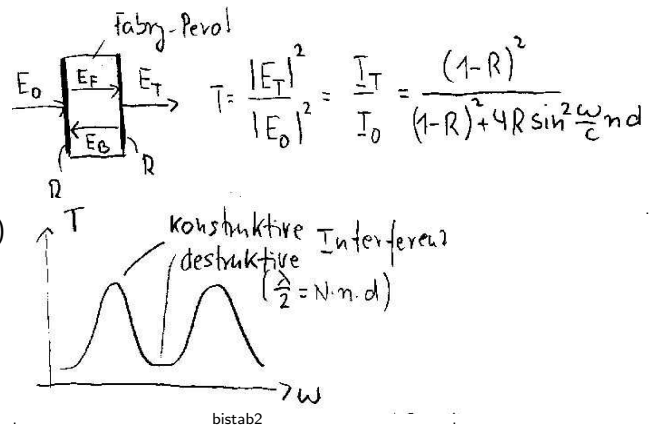 Fabry-Perot
E₀ E_F E_T T = |E_T|² / |E₀|² = I_T / I₀ = (1-R)² / ((1-R)² + 4R sin² ω/c nd)
E_B
R R
) T konstruktive Interferenz
destruktive
(λ/2 = N·n·d)
ω
bistab2